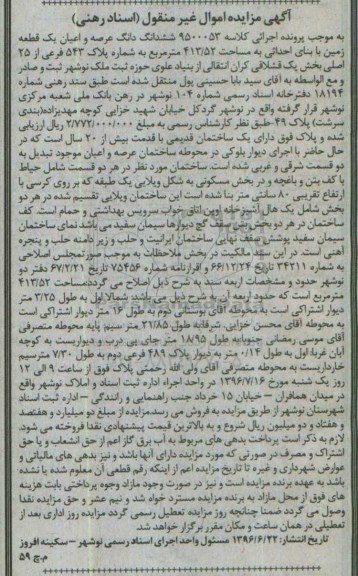 آگهی مزایده اموال غیر منقول (اسناد رهنی)
به موجب پرونده اجرائی کلاسه 9500053 ششدانگ عرصه و اعیان یک قطعه
زمین با بنای احداثی به مساحت 413/52 مترمربع به شماره پلاک 543 فرعی از 25
اصلی بخش یک قشلاقی کران انتقالی از بنیاد علوی حوزه ثبت ملک نوشهر ثبت و صادر
و مع الواسطه به آقای سید بابا حسینی پول منتقل شده است طبق سند رهنی شماره
18194 دفترخانه اسناد رسمی شماره 104 نوشهر در رهن بانک ملی شعبه مرکزی
نوشهر قرار گرفته واقع در نوشهر گردکل خیابان شهید خزایی کوچه مهدیزاده(بندی
سرشت) پلاک 49 طبق نظر کارشناس رسمی به مبلغ 2/772/000/000 ریال ارزیابی
شده و پلاک فوق دارای یک ساختمان قدیمی با قدمت بیش از 20 سال است که در
حال حاضر با اجرای دیوار بلوکی در محوطه ساختمان عرصه و اعیان موجود تبدیل به
دو قسمت شرقی و غربی شده است. ساختمان مورد نظر در هر دو قسمت شامل حیاط
با کف بتن و باغچه و در بخش مسکونی به شکل ویلایی یک طبقه که بر روی کرسی با
ارتفاع تقریبی 80 سانتی متر بنا شده است این ساختمان ویلایی تقسیم شده در هر دو
بخش شامل یک هال آشپزخانه اوپن اتاق خواب سرویس بهداشتی و حمام است. کف
ساختمان در هر دو بخش بتن سقف گچ دیوارها سیمان سفید می باشد نمای ساختمان
سیمان سفید پوشش سقف نهایی ساختمان ایرانیت و حلب و زیر دامنه حلب و پنجره
آهنی است. در این سند مالکیت در بخش ملاحظات به موجب صورتمجلس اصلاحی
به شماره 34211 تاریخ 66/12/24 و اقرارنامه شماره 75456 تاریخ 67/2/21 دفتر دو
نوشهر حدود و مشخصات اربعه سند به شرح ذیل اصلاح می گردد:مساحت 413/52
مترمربع است که حدود اربعه آن به شرح ذیل می باشد شمالا:اول به طول 3/25 متر
دیوار اشتراکی است به محوطه آقای بوستانی دوم به طول 16 متر دیوار اشتراکی است
به محوطه آقای محسن خزایی. شرقا:به طول 21/85 متر سیم پایه محوطه متصرفی
آقای موسی رمضانی جنوبا:به طول 18/95 متر جای پی درب و دیواریست به کوچه
آبان غربا: اول به طول 0/14 متر به دیوار پلاک 489 فرعی دوم به طول 7/30 مترسیم
خارداریست به محوطه متصرفی آقای ولی الله رحمتی پلاک فوق از ساعت 9 الی 12
روز یک شنبه مورخ 1396/7/16 در واحد اجراء اداره ثبت اسناد و املاک نوشهر واقع
در میدان همافران – خیابان 15 خرداد جنب راهنمایی و رانندگی – اداره ثبت اسناد
شهرستان نوشهر از طریق مزایده به فروش می رسد.مزایده از مبلغ دو میلیارد و هفتصد
و هفتاد و دو میلیون ریال شروع و به بالاترین قیمت پیشنهادی نقدا فروخته می شود.
لازم به ذکر است پرداخت بدهی های مربوط به آب برق گاز اعم از حق انشعاب و یا حق
اشتراک و مصرف در صورتی که مورد مزایده دارای آنها باشد و نیز بدهی های مالیاتی و
عوارض شهرداری و غیره تا تاریخ مزایده اعم از اینکه رقم قطعی آن معلوم شده یا نشده
باشد به عهده برنده مزایده است و نیز در صورت وجود مازاد وجوه پرداختی بابت هزینه
های فوق از محل مازاد به برنده مزایده مسترد خواهد شد و نیم عشر و حق مزایده نقدا
وصول می گردد ضمنا چنانچه روز مزایده تعطیل رسمی گردد مزایده روز اداری بعد از
تعطیلی در همان ساعت و مکان مقرر برگزار خواهد شد.
تاریخ انتشار: 1396/6/22 مسئول واحد اجرای اسناد رسمی نوشهر – سکینه افروز
م.ج 59